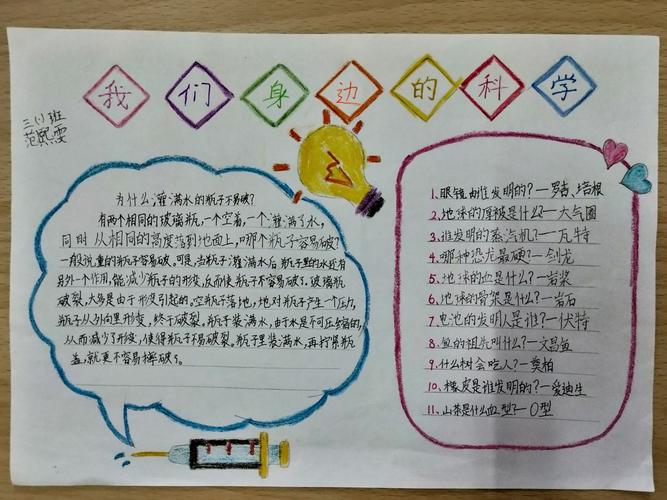 我们身边的科学
三(1)班
范熙雯
为什么灌满水的瓶子不易破?
有两个相同的玻璃瓶,一个空着,一个灌满了水,
同时从相同的高度落到地面上,哪个瓶子容易破?
一般说,重的瓶子容易破。可是,当瓶子灌满水后,瓶子里的水还有
另外一个作用,能减少瓶子的形变,反而使瓶子不容易破了。玻璃瓶
破裂,大多是由于形变引起的。空瓶子落地,地对瓶子产生一个压力,
瓶子从外向里形变,终于破裂。瓶子装满水,由于水是不可压缩的,
从而减少了形变,使得瓶子不易破裂。瓶子里装满水,再拧紧瓶
盖,就更不容易摔破了。
1、眼镜由谁发明的?—罗吉、培根
2、地球的厚被是什么?—大气圈
3、谁发明的蒸汽机?—瓦特
4、哪种恐龙最硬?—剑龙
5、地球的血是什么?—岩浆
6、地球的骨架是什么?—岩石
7、电池的发明人是谁?—伏特
8、鱼的祖先叫什么?—文昌鱼
9、什么树会吃人?—奠柏
10、橡皮是谁发明的?—爱迪生
11、山茶是什么血型?—O型